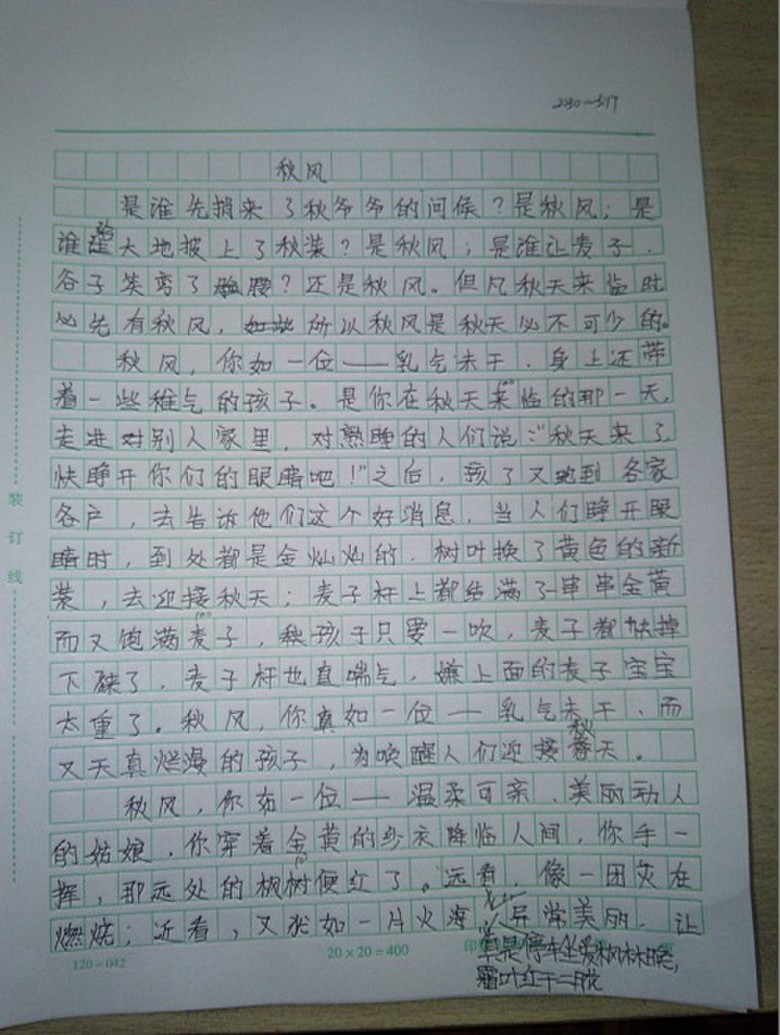 秋风
是谁先捎来了秋爷爷的问候？是秋风；是
谁给大地披上了秋装？是秋风；是谁让麦子、
谷子笑弯了腰？还是秋风。但凡秋天来临时
必先有秋风，所以秋风是秋天必不可少的。
秋风，你如一位——乳气未干、身上还带
着一些稚气的孩子。是你在秋天来临的那一天，
走进别人家里，对熟睡的人们说："秋天来了，
快睁开你们的眼睛吧！"之后，孩子又跑到各家
各户，去告诉他们这个好消息，当人们睁开眼
睛时，到处都是金灿灿的，树叶换了黄色的新
装，去迎接秋天；麦子杆上都结满了串串金黄
而又饱满麦子，秋孩子只要一吹，麦子都快掉
下来了，麦子杆也直喘气，嫌上面的麦子宝宝
太重了。秋风，你真如一位——乳气未干、而
又天真烂漫的孩子，为唤醒人们迎接秋天。
秋风，你如一位——温柔可亲、美丽动人
的姑娘，你穿着金黄的纱衣降临人间，你手一
挥，那远处的枫树便红了。远看，像一团火在
燃烧；近看，又犹如一片火海，异常美丽，让
真是停车坐爱枫林晚，
霜叶红于二月花
装订线
120—042
20×20=400